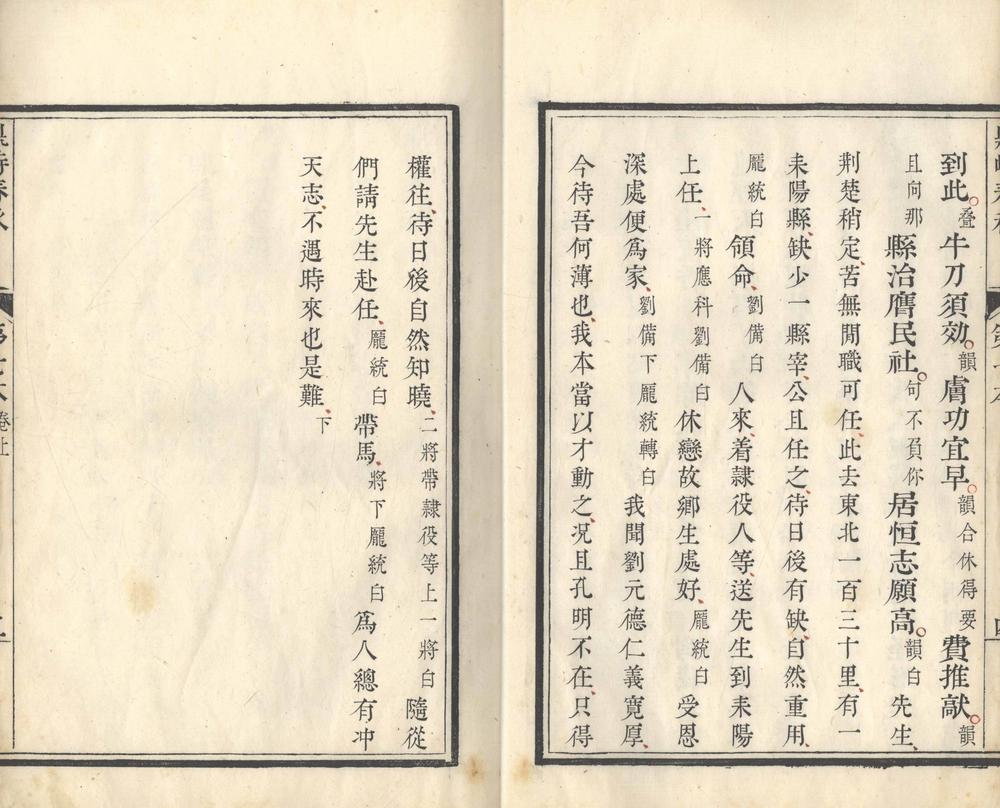 到此。叠牛刀須効。韻膚功宜早。韻合休得要費推敲。韻
且向那縣治膺民社。句不負你居恒志願高。韻白先生、
荆楚稍定、苦無閒職可任、此去東北一百三十里、有一
耒陽縣、缺少一縣宰、公且任之、待日後有缺、自然重用、
龎統白領命、劉備白人來、着隷役人等、送先生到耒陽
上任、一將應科劉備白休戀故鄉生處好、龎統白受恩
深處便爲家、劉備下龎統轉白我聞劉元德仁義寬厚、
今待吾何薄也、我本當以才動之、况且孔明不在、只得
權往、待日後自然知曉、二將帶隷役等上一將白隨從
們請先生赴任、龎統白帶馬、將下龎統白爲人總有冲
天志、不遇時來也是難、下